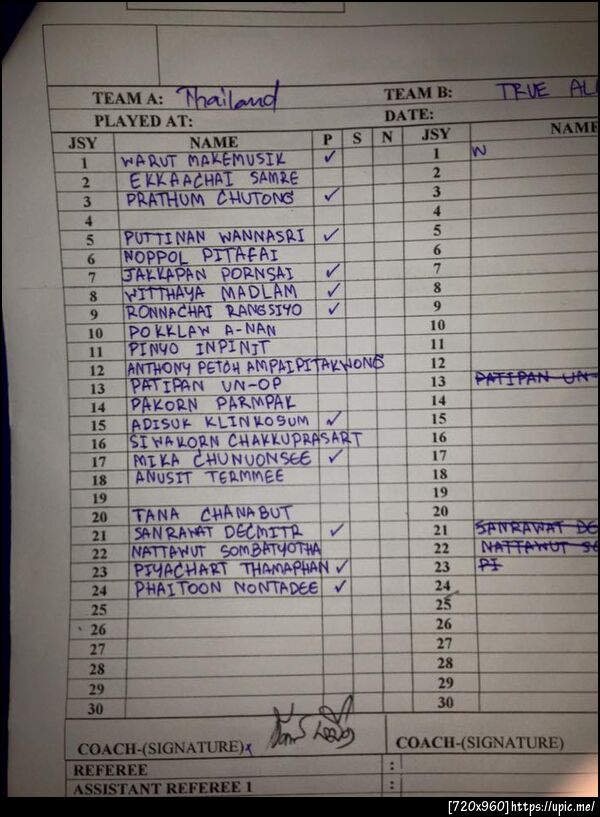 TEAM A: Thailand TEAM B: TRUE AL
PLAYED AT: DATE:
JSY NAME P S N JSY NAME
1 WARUT MAKEMUSIK ✓ 1 W
2 EKKAACHAI SAMRE 2
3 PRATHUM CHUTONG ✓ 3
4 4
5 PUTTINAN WANNASRI ✓ 5
6 NOPPOL PITAFAI 6
7 JAKKAPAN PORNSAI ✓ 7
8 WITTHAYA MADLAM ✓ 8
9 RONNACHAI RANGSIYO ✓ 9
10 POKKLAW A-NAN 10
11 PINYO INPINIT 11
12 ANTHONY PETCH AMPAIPITAKWONG 12
13 PATIPAN UN-OP 13 PATIPAN UN-
14 PAKORN PARMPAK 14
15 ADISUK KLINKOSUM ✓ 15
16 SIWAKORN CHAKKUPRASART 16
17 MIKA CHUNUONSEE ✓ 17
18 ANUSIT TERMMEE 18
19 19
20 TANA CHANABUT 20
21 SANRAWAT DECMITR ✓ 21 SANRAWAT DE
22 NATTAWUT SOMBATYOTHA 22 NATTAWUT S
23 PIYACHART THAMAPHAN ✓ 23 PI
24 PHAITOON NONTADEE ✓ 24
25 25
26 26
27 27
28 28
29 29
30 30
COACH-(SIGNATURE)x COACH-(SIGNATURE)
REFEREE :
ASSISTANT REFEREE 1 :
[720x960]https://upic.me/